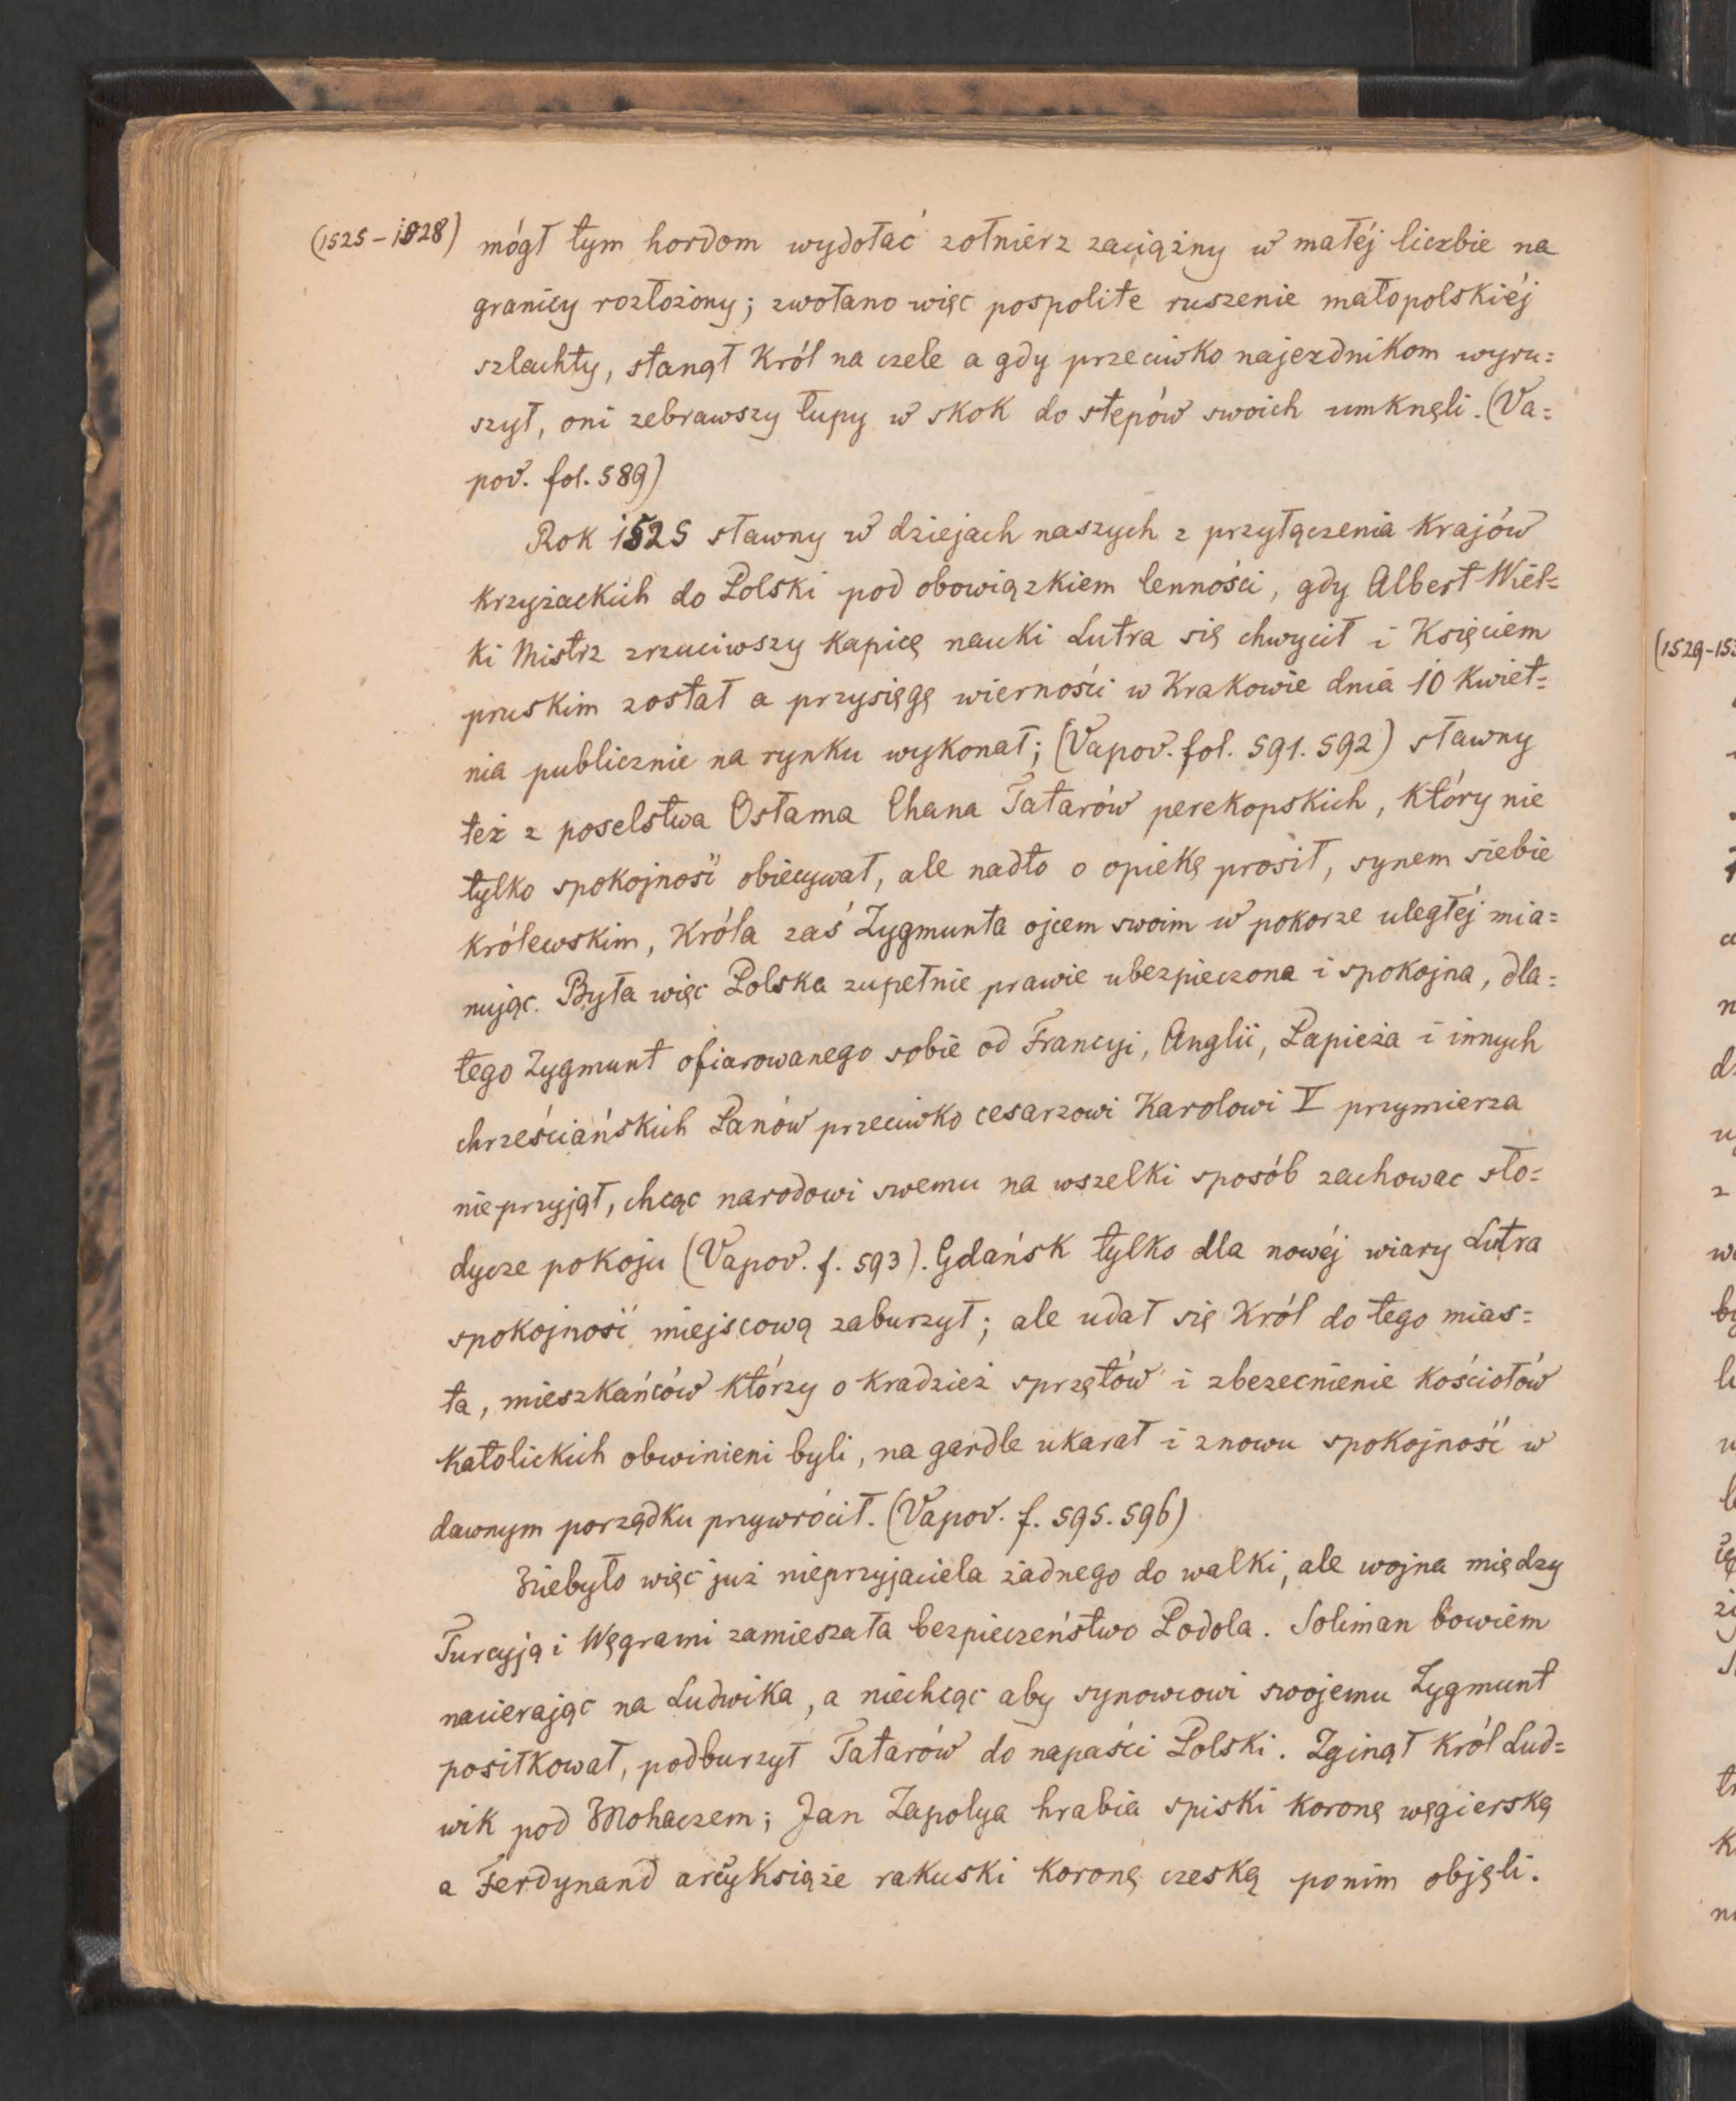 (1525-1528) mógł tym hordom wydołać zołnierz zaciążny w małéj liczbie na
granicy rozłożony; zwołano więc pospolite ruszenie małopolskiéj
szlachty, stanął Król na czele a gdy przeciwko najezdnikom wyru=
szył, oni zebrawszy łupy w skok do stepów swoich umknęli. (Va=
pov. fol. 589)
Rok 1525 sławny w dziejach naszych z przyłączenia Krajów
Krzyżackich do Polski pod obowiązkiem lenności, gdy Albert Wiel=
ki Mistrz zrzuciwszy Kapicę nauki Lutra się chwycił i Księciem
pruskim został a przysięgę wierności w Krakowie dnia 10 Kwiet=
nia publicznie na rynku wykonał; (Vapov. fol. 591. 592) sławny
też z poselstwa Osłama Chana Tatarów perekopskich, Który nie
tylko spokojność obiecywał, ale nadto o opiekę prosił, synem siebie
królewskim, Króla zaś Zygmunta ojcem swoim w pokorze uległéj mia=
nując. Była więc Polska zupełnie prawie ubezpieczona i spokojna, dla=
tego Zygmunt ofiarowanego sobie od Francyi, Anglii, Papieża i innych
chrześciańskich Panów przeciwko cesarzowi Karolowi V przymierza
nieprzyjął, chcąc narodowi swemu na wszelki sposób zachowac sło=
dycze pokoju (Vapov. f. 593). Gdańsk tylko dla nowéj wiary Lutra
spokojność miejscową zaburzył; ale udał się Król do tego mias=
ta, mieszkańców Którzy o Kradzież sprzętów i zbezecnienie Kościołów
Katolickich obwinieni byli, na gardle ukarał i znowu spokojność w
dawnym porządku przywrócił. (Vapov. f. 595. 596)
Niebyło więc już nieprzyjaciela żadnego do walki, ale wojna między
Turcyją i Węgrami zamieszała bezpieczeństwo Podola. Soliman bowiem
nacierając na Ludwika, a niechcąc aby synowcowi swojemu Zygmunt
posiłkował, podburzył Tatarów do napaści Polski. Zginął Król Lud=
wik pod Mohaczem; Jan Zapolya hrabia spiski Koronę węgierską
a Ferdynand arcyksiąże rakuski Koronę czeską ponim objęli.
(1529-15